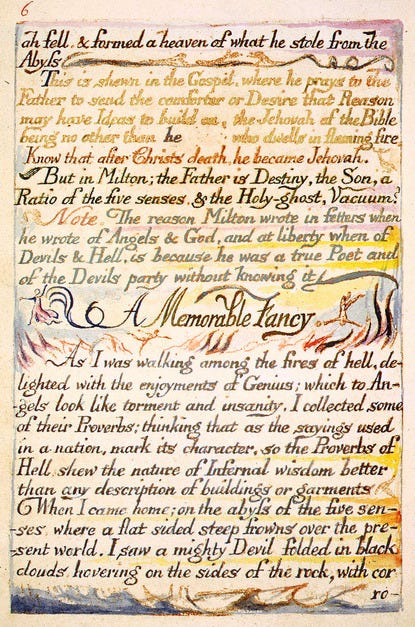 6
ah fell, & formed a heaven of what he stole from the
Abyss
This is shewn in the Gospel, where he prays to the
Father to send the comforter or Desire that Reason
may have Ideas to build on, the Jehovah of the Bible
being no other than he who dwells in flaming fire
Know that after Christs death, he became Jehovah.
But in Milton; the Father is Destiny, the Son, a
Ratio of the five senses, & the Holy-ghost, Vacuum!
Note. The reason Milton wrote in fetters when
he wrote of Angels & God, and at liberty when of
Devils & Hell, is because he was a true Poet and
of the Devils party without knowing it
A Memorable Fancy
As I was walking among the fires of hell, de-
lighted with the enjoyments of Genius; which to An-
gels look like torment and insanity. I collected some
of their Proverbs; thinking that as the sayings used
in a nation, mark its character, so the Proverbs of
Hell, shew the nature of Infernal wisdom better
than any description of buildings or garments
When I came home; on the abyss of the five sen-
-ses, where a flat sided steep frowns over the pre-
-sent world. I saw a mighty Devil folded in black
clouds, hovering on the sides of the rock, with cor
ro-